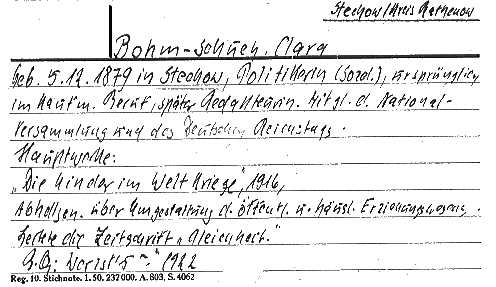 Stechow/Kreis Rathenow
Bohm-Schuch, Clara
Geb. 5.12.1879 in Stechow, Politikerin (Sozd.), ursprünglich
im kaufm. Beruf, später Redakteurin. Mitgl. d. National-
versammlung und des Deutschen Reichstags.
Hauptwerke:
„Die Kinder im Weltkriege", 1916,
Abhdlgen. über Umgestaltung d. öffentl. u. häusl. Erziehungswesens.
Leitete die Zeitschrift „Gleichheit."
1922
Reg. 10. Stichnote. 1. 50. 232 000. A. 803, S. 4062